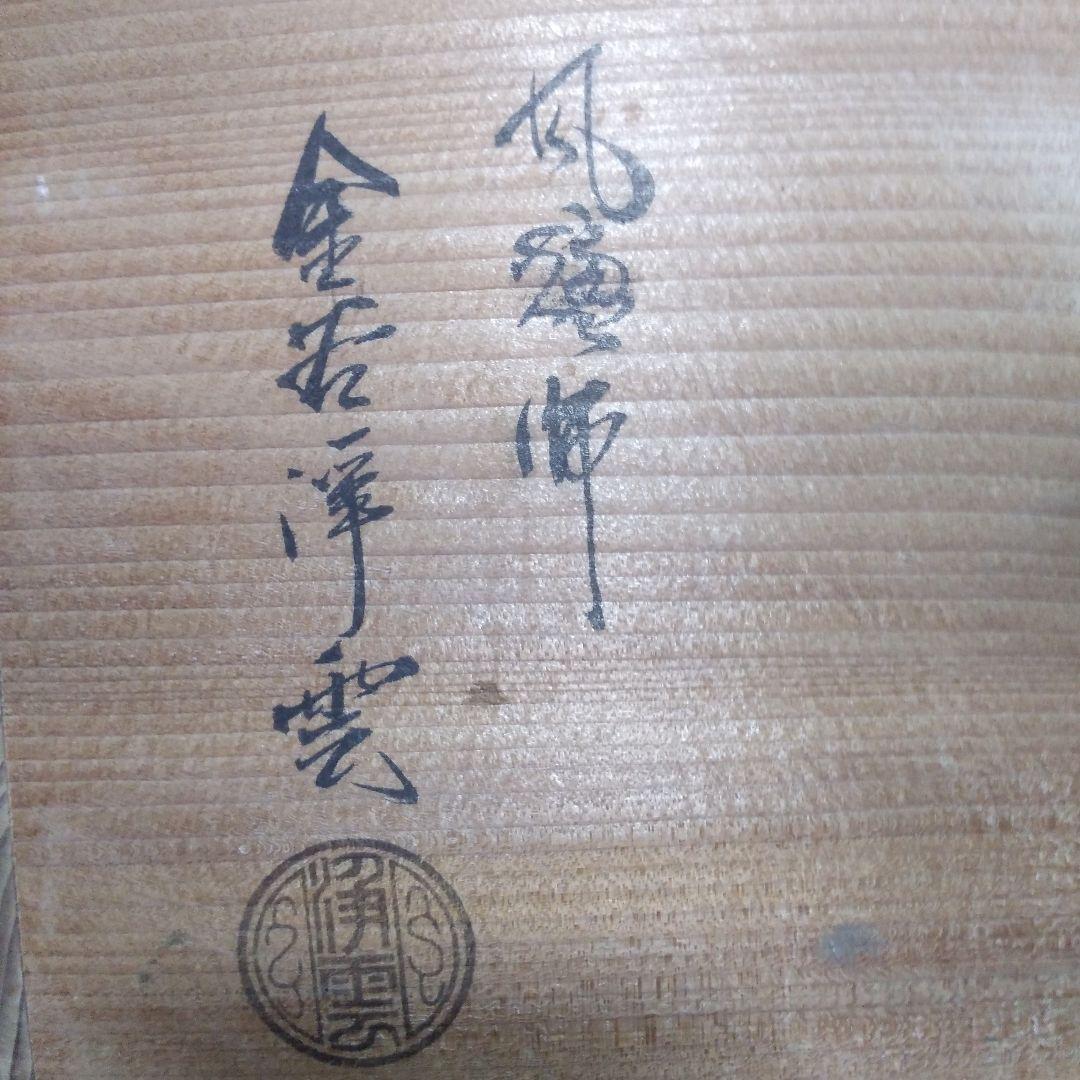 風爐師
金谷浄雲
浄雲